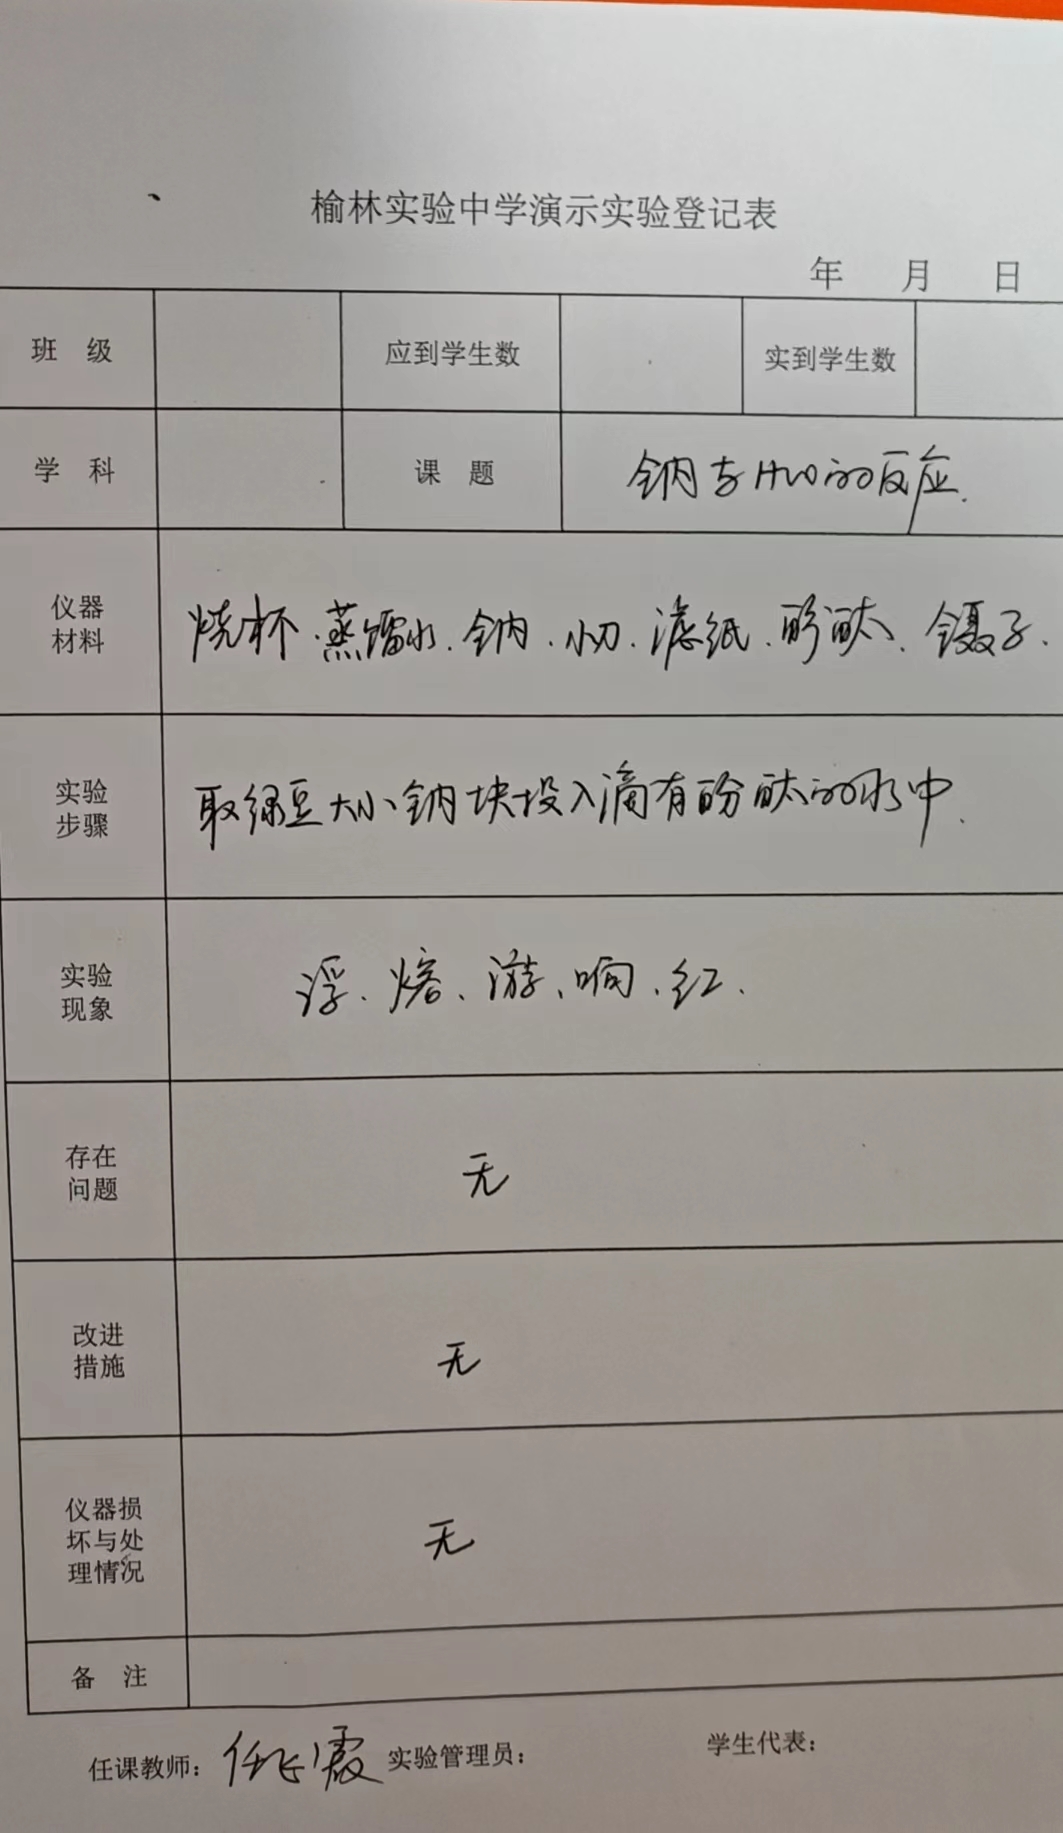 榆林实验中学演示实验登记表
年 月 日
班 级 应到学生数 实到学生数
学 科 课 题 钠与H2O的反应.
仪器
材料
烧杯.蒸馏水.钠.小刀.滤纸.酚酞.镊子.
实验
步骤
取绿豆大小钠块投入滴有酚酞的水中.
实验
现象
浮、熔、游、响、红.
存在
问题
无
改进
措施
无
仪器损
坏与处
理情况
无
备 注
任课教师: 任飞霞 实验管理员: 学生代表: